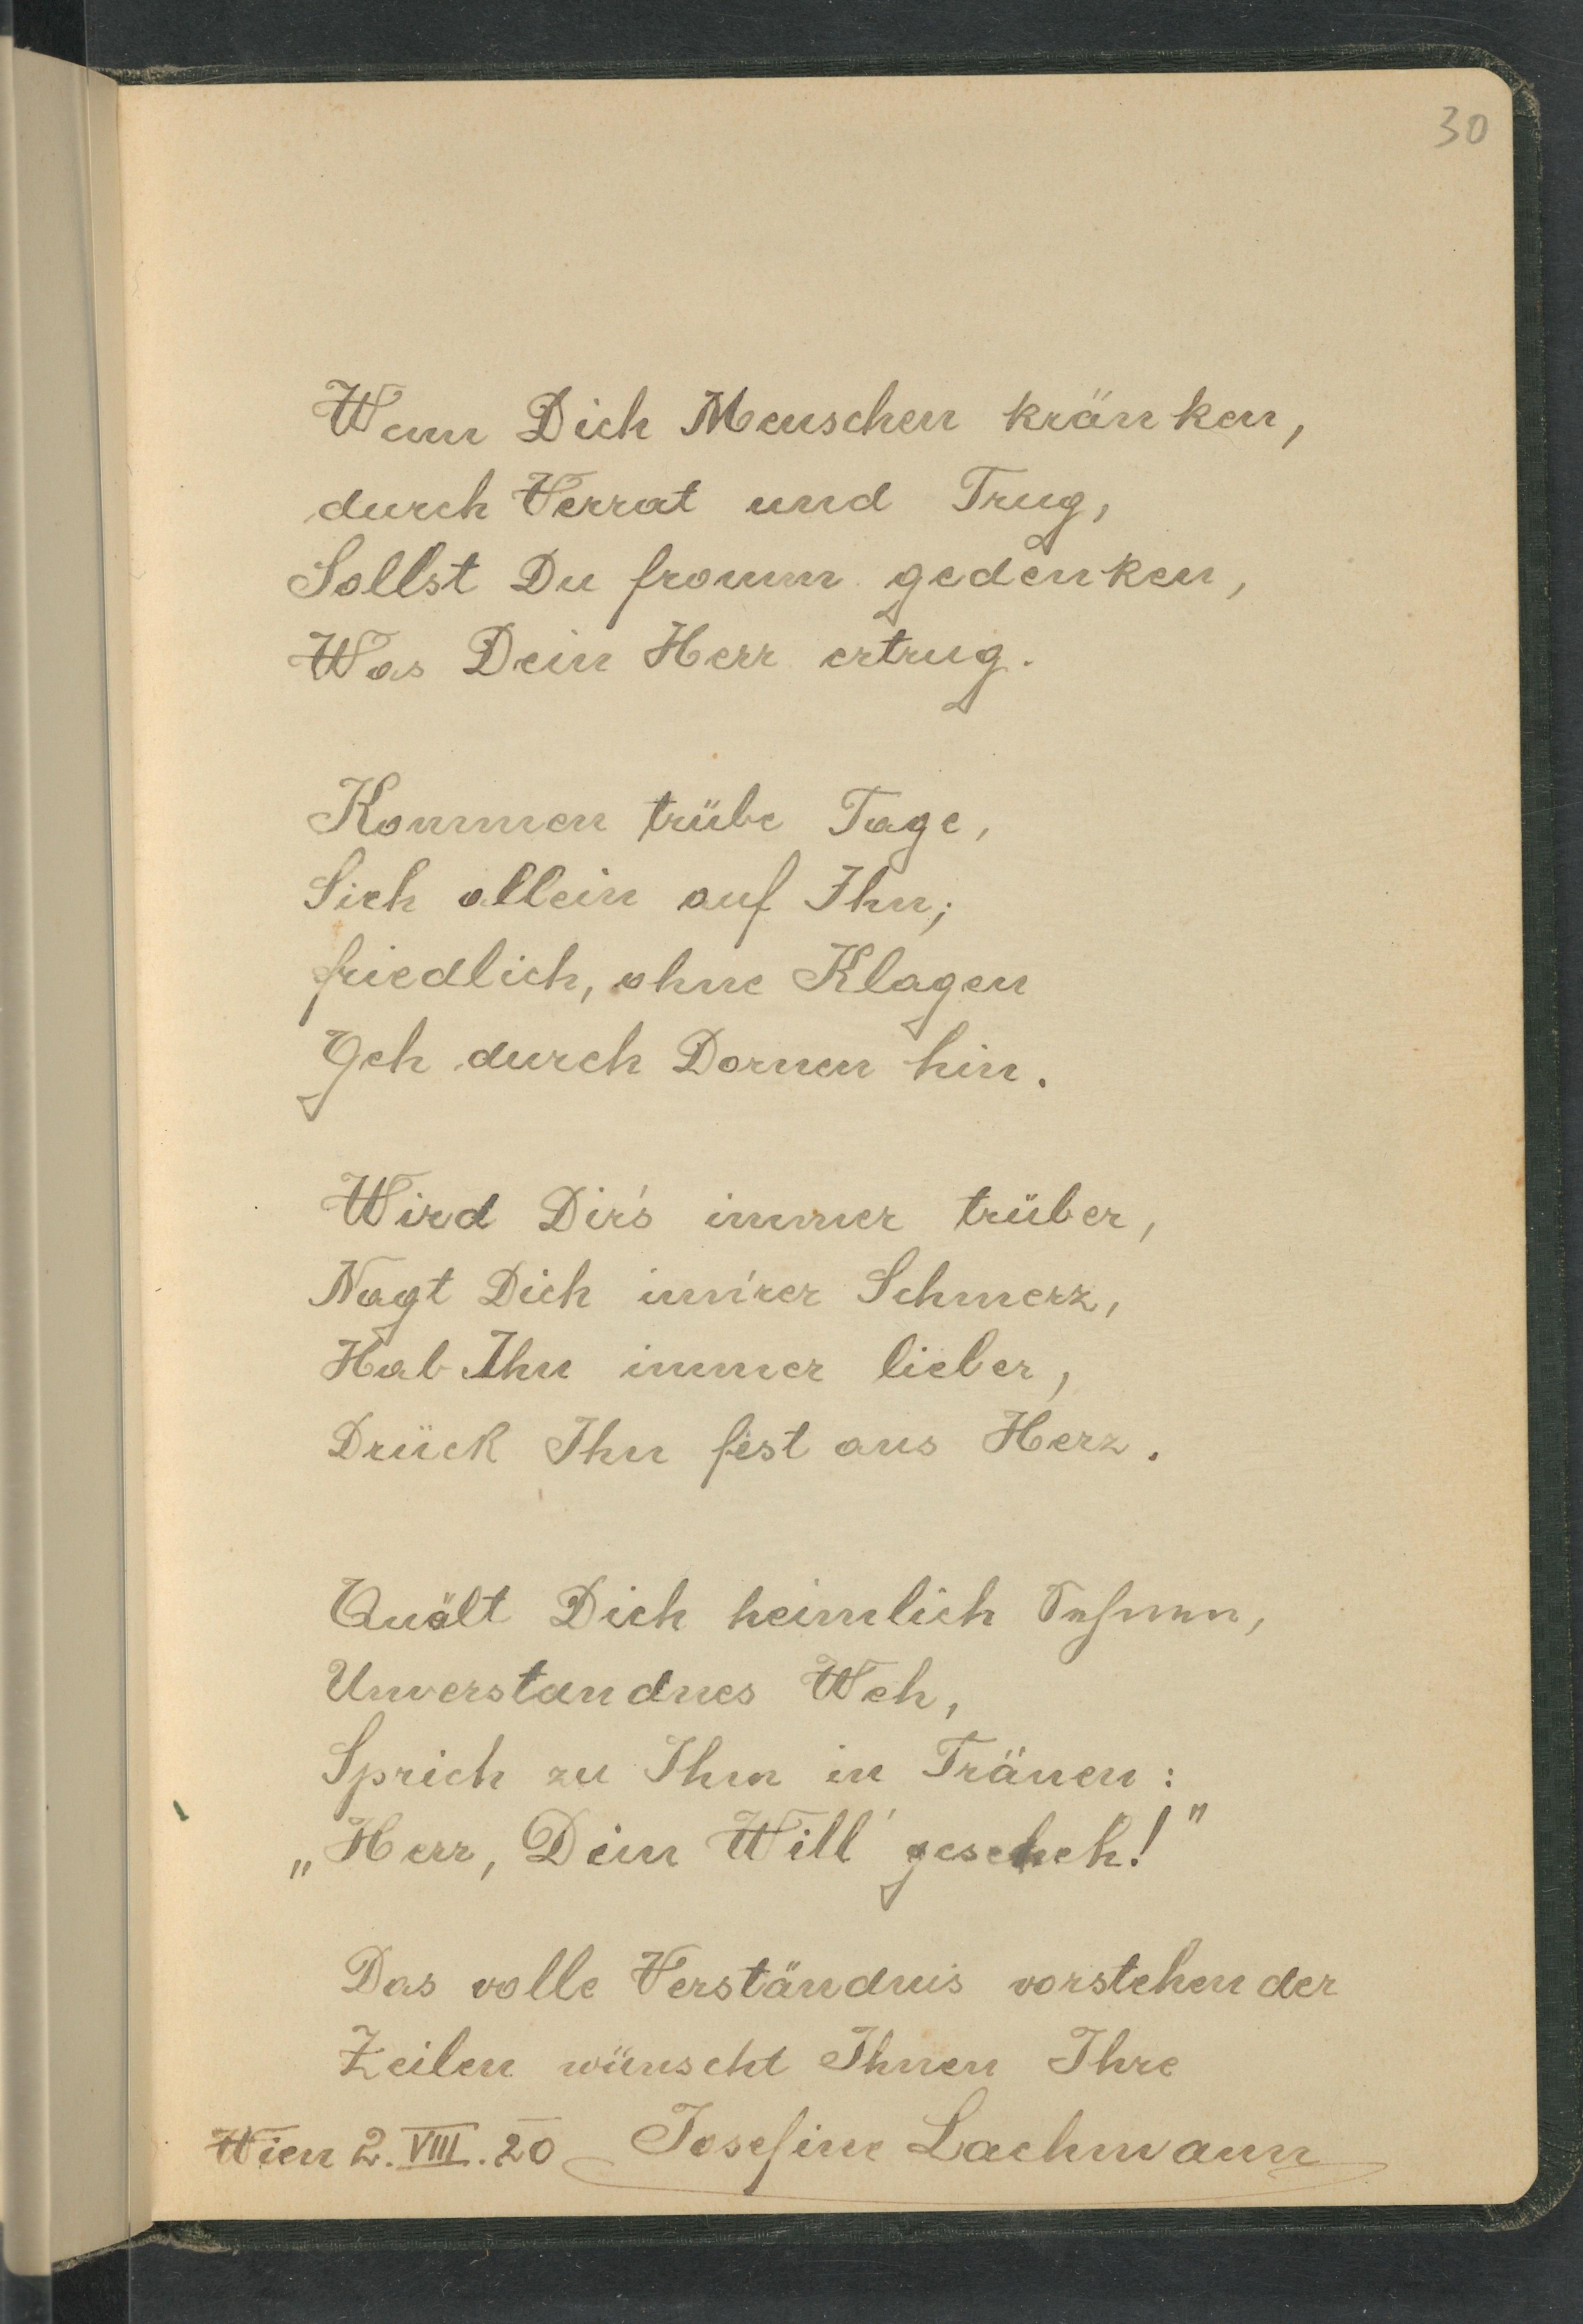 30
Wenn Dich Menschen kränken,
durch Verrat und Trug,
Sollst Du fromm gedenken,
Was Dein Herr ertrug.
Kommen trübe Tage,
Sieh allein auf Ihn;
friedlich, ohne Klagen
Geh durch Dornen hin.
Wird Dir's immer trüber,
Nagt Dich inn'rer Schmerz,
Hab Ihn immer lieber,
Drück Ihn fest ans Herz.
Quält Dich heimlich Sehnen,
Unverstandnes Weh,
Sprich zu Ihm in Tränen:
„Herr, Dein Will' gescheh!"
Das volle Verständnis vorstehender
Zeilen wünscht Ihnen Ihre
Wien 2. VIII. 20 Josefine Lachmann